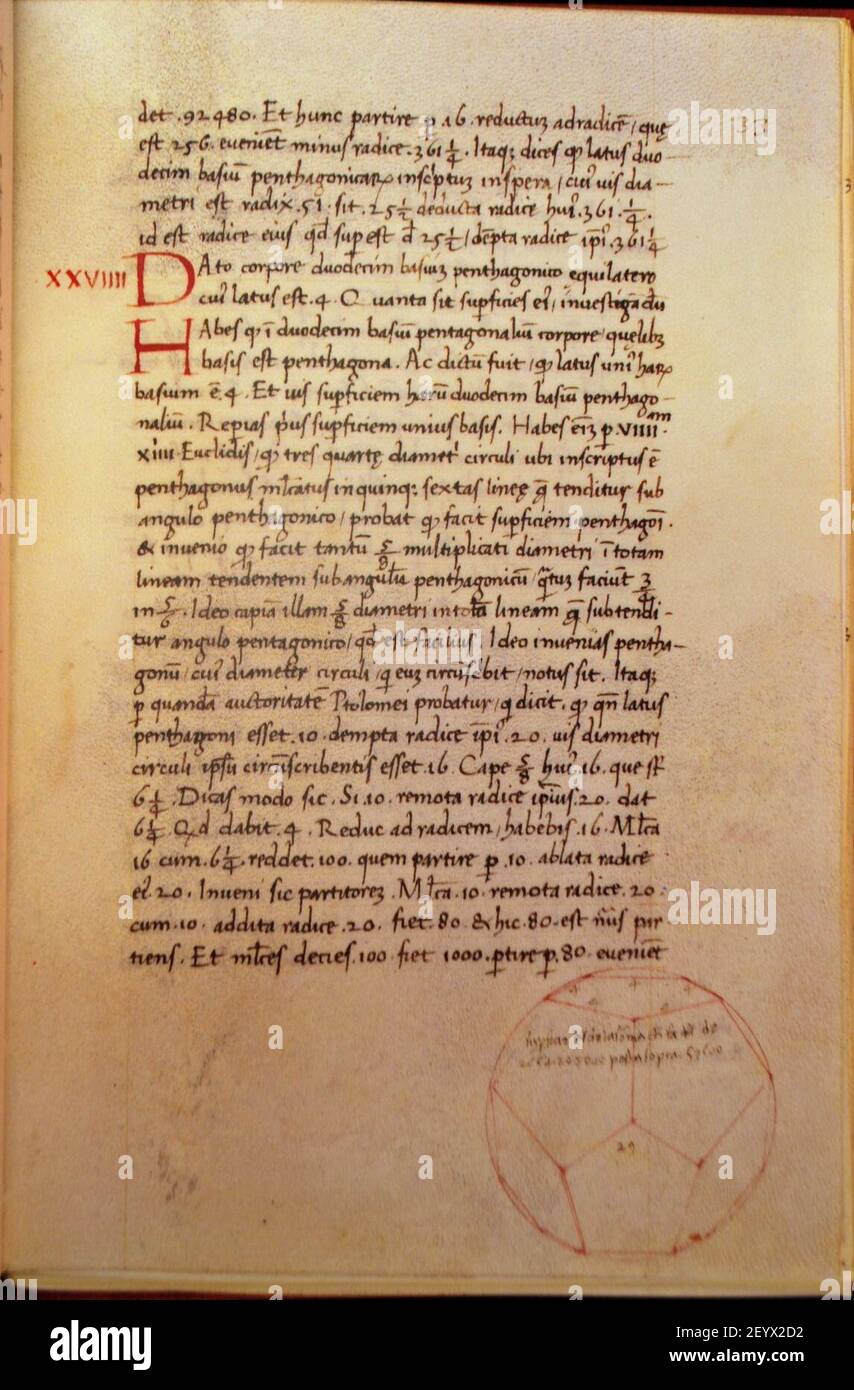 det .92480. Et hunc partire p 16. reductuȝ ad radicē / quę
est 256. eveniēt minus radice .361 1/4. Itaqȝ dices qp latus duo-
decim basiū penthagonicarꝝ inscriptuȝ in spera / cuiꝰ vis dia-
metri est radix .51. sit. 25 1/2 deducta radice huiꝰ .361. 1/4.
id est radice eius qd supest d 25 1/2 / dēpta radice ipiꝰ .361 1/4
XXVIIII
DAto corpore duodecim basiuȝ penthagonico equilatero
cuiꝰ latus est .4. Quanta sit supficies eiꝰ / investigādū
HAbes qp ī duodecim basiū pentagonaliuȝ corpore / quęlibȝ
basis est penthagona. Ac dictū fuit / qp latus uniꝰ harꝝ
basium ē .4. Et vis supficiem harū duodecim basiū penthago-
naliū. Repias pius supficiem unius basis. Habes eīȝ p VIIIIam.
xiiii Euclidis / qp tres quartę diametꝭ circuli ubi inscriptus ē
penthagonus mlcatus in quinqȝ sextas linee q̄ tenditur sub
angulo penthagonico / probat qp facit supficiem penthagoī.
& invenio qp facit tantū 5/8 multiplicati diametri ī totam
lineam tendentem sub angulū penthagonicū / q̄tuȝ faciūt 3/4
in 5/6. Ideo capiā illam 5/8 diametri in totā lineam q̄ subtendi-
tur angulo pentagonico / qd est facilius. Ideo invenias pentha-
gonū / cuiꝰ diameter circuli / q euȝ circūscbit / notus sit. Itaqȝ
p quandā auctoritatē Ptolomei probatur / q dicit. qp qn latus
penthagoni esset .10. dempta radice ipiꝰ .20. vis diametri
circuli ipsū circūscribentis esset .16. Cape 5/8 huiꝰ 16. que st
6 1/4. Dicas modo sic. Si 10. remota radice ipius .20. dat
6 1/4. Qd dabit .4. Reduc ad radicem / habebis .16. Mlca
16 cum. 6 1/4. reddet. 100. quem partire p .10. ablata radice
eiꝰ .20. Inveni sic partitoreȝ. Mlca .10. remota radice .20.
cum .10. addita radice .20. fiet. 80. & hic .80. est nūs par
tiens. Et mlces decies .100. fiet 1000. ptire p. 80. eveniēt
4
29